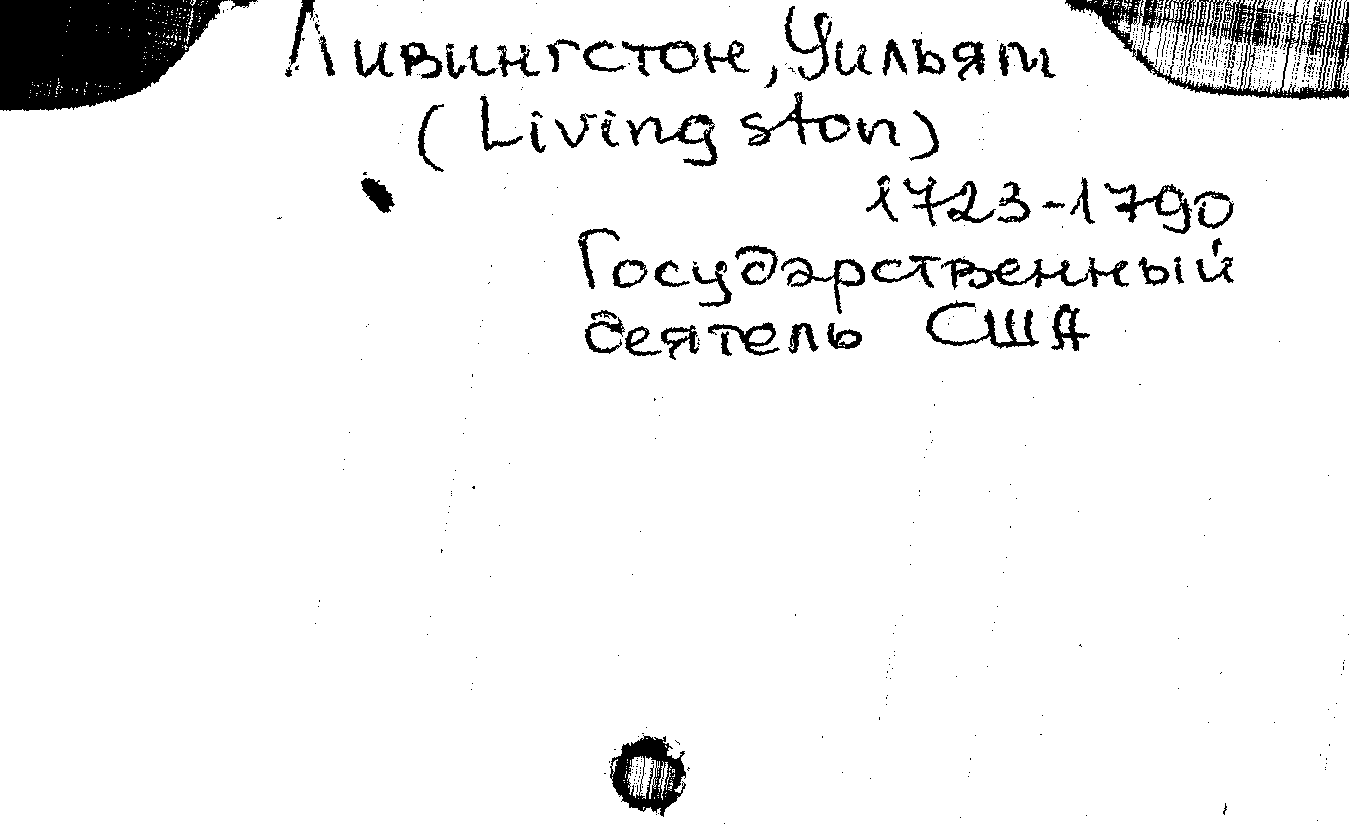 Ливингстон, Уильям
(Livingston)
1723-1790
Государственный
деятель США